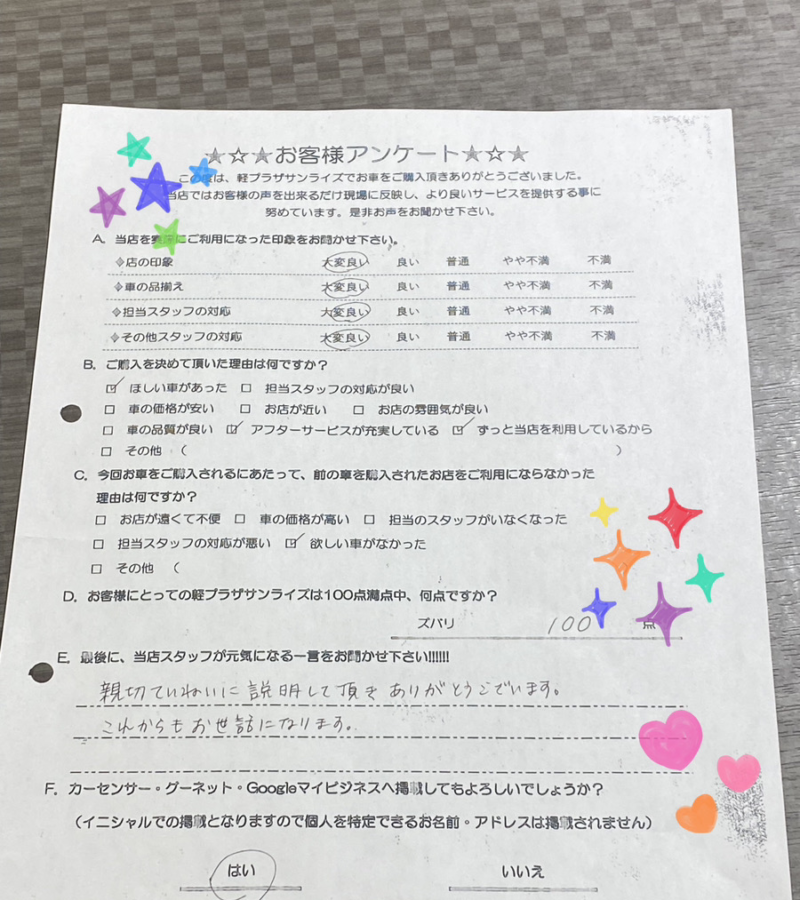 ★☆★お客様アンケート★☆★
この度は、軽プラザサンライズでお車をご購入頂きありがとうございました。
当店ではお客様の声を出来るだけ現場に反映し、より良いサービスを提供する事に
努めています。是非お声をお聞かせ下さい。
A. 当店を実際にご利用になった印象をお聞かせ下さい。
◈店の印象 大変良い 良い 普通 やや不満 不満
◈車の品揃え 大変良い 良い 普通 やや不満 不満
◈担当スタッフの対応 大変良い 良い 普通 やや不満 不満
◈その他スタッフの対応 大変良い 良い 普通 やや不満 不満
B. ご購入を決めて頂いた理由は何ですか？
☑ ほしい車があった □ 担当スタッフの対応が良い
□ 車の価格が安い □ お店が近い □ お店の雰囲気が良い
□ 車の品質が良い ☑ アフターサービスが充実している ☑ ずっと当店を利用しているから
□ その他 （ ）
C. 今回お車をご購入されるにあたって、前の車を購入されたお店をご利用にならなかった
理由は何ですか？
□ お店が遠くて不便 □ 車の価格が高い □ 担当のスタッフがいなくなった
□ 担当スタッフの対応が悪い ☑ 欲しい車がなかった
□ その他 （
D. お客様にとっての軽プラザサンライズは100点満点中、何点ですか？
ズバリ 100 点
E. 最後に、当店スタッフが元気になる一言をお聞かせ下さい!!!!!!
親切ていねいに説明して頂きありがとうございます。
これからもお世話になります。
F. カーセンサー・グーネット・Googleマイビジネスへ掲載してもよろしいでしょうか？
（イニシャルでの掲載となりますので個人を特定できるお名前・アドレスは掲載されません）
はい いいえ